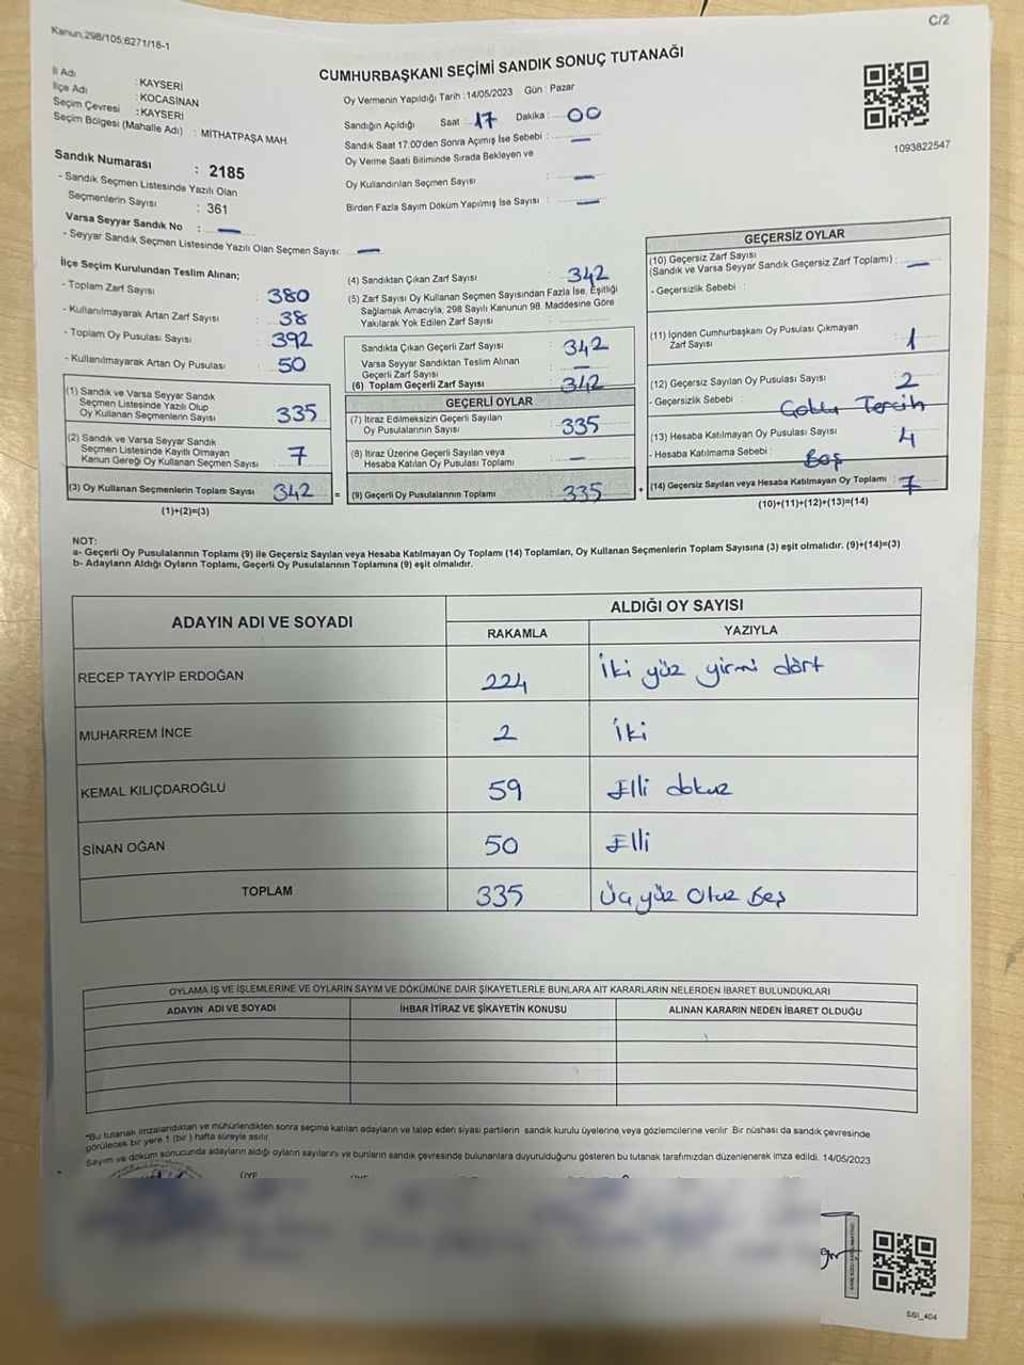 Kanun:298/105;6271/16-1
C/2
CUMHURBAŞKANI SEÇİMİ SANDIK SONUÇ TUTANAĞI
İl Adı : KAYSERİ
İlçe Adı : KOCASİNAN
Seçim Çevresi : KAYSERİ
Seçim Bölgesi (Mahalle Adı) : MİTHATPAŞA MAH.
Oy Vermenin Yapıldığı Tarih : 14/05/2023 Gün : Pazar
Sandığın Açıldığı Saat : 17 Dakika : 00
Sandık Saat 17:00'den Sonra Açımış İse Sebebi : —
Oy Verme Saati Bitiminde Sırada Bekleyen ve
Oy Kullandırılan Seçmen Sayısı : —
Birden Fazla Sayım Döküm Yapılmış İse Sayısı : —
1093822547
Sandık Numarası : 2185
- Sandık Seçmen Listesinde Yazılı Olan
Seçmenlerin Sayısı : 361
Varsa Seyyar Sandık No : —
- Seyyar Sandık Seçmen Listesinde Yazılı Olan Seçmen Sayısı: —
İlçe Seçim Kurulundan Teslim Alınan;
- Toplam Zarf Sayısı : 380
- Kullanılmayarak Artan Zarf Sayısı : 38
- Toplam Oy Pusulası Sayısı : 392
- Kullanılmayarak Artan Oy Pusulası : 50
(1) Sandık ve Varsa Seyyar Sandık
Seçmen Listesinde Yazılı Olup
Oy Kullanan Seçmenlerin Sayısı : 335
(2) Sandık ve Varsa Seyyar Sandık
Seçmen Listesinde Kayıtlı Olmayan
Kanun Gereği Oy Kullanan Seçmen Sayısı : 7
(3) Oy Kullanan Seçmenlerin Toplam Sayısı : 342 =
(1)+(2)=(3)
(4) Sandıktan Çıkan Zarf Sayısı : 342
(5) Zarf Sayısı Oy Kullanan Seçmen Sayısından Fazla İse, Eşitliği
Sağlamak Amacıyla, 298 Sayılı Kanunun 98. Maddesine Göre
Yakılarak Yok Edilen Zarf Sayısı :
Sandıkta Çıkan Geçerli Zarf Sayısı : 342
Varsa Seyyar Sandıktan Teslim Alınan
Geçerli Zarf Sayısı : —
(6) Toplam Geçerli Zarf Sayısı : 342
GEÇERLİ OYLAR
(7) İtiraz Edilmeksizin Geçerli Sayılan
Oy Pusulalarının Sayısı : 335
(8) İtiraz Üzerine Geçerli Sayılan veya
Hesaba Katılan Oy Pusulası Toplamı : —
(9) Geçerli Oy Pusulalarının Toplamı : 335 +
GEÇERSİZ OYLAR
(10) Geçersiz Zarf Sayısı
(Sandık ve Varsa Seyyar Sandık Geçersiz Zarf Toplamı) : —
- Geçersizlik Sebebi :
(11) İçinden Cumhurbaşkanı Oy Pusulası Çıkmayan
Zarf Sayısı : 1
(12) Geçersiz Sayılan Oy Pusulası Sayısı : 2
- Geçersizlik Sebebi : Çoklu Tercih
(13) Hesaba Katılmayan Oy Pusulası Sayısı : 4
- Hesaba Katılmama Sebebi : Boş
(14) Geçersiz Sayılan veya Hesaba Katılmayan Oy Toplamı : 7
(10)+(11)+(12)+(13)=(14)
NOT:
a- Geçerli Oy Pusulalarının Toplamı (9) ile Geçersiz Sayılan veya Hesaba Katılmayan Oy Toplamı (14) Toplamları, Oy Kullanan Seçmenlerin Toplam Sayısına (3) eşit olmalıdır. (9)+(14)=(3)
b- Adayların Aldığı Oyların Toplamı, Geçerli Oy Pusulalarının Toplamına (9) eşit olmalıdır.
ADAYIN ADI VE SOYADI
ALDIĞI OY SAYISI
RAKAMLA YAZIYLA
RECEP TAYYİP ERDOĞAN 224 İki yüz yirmi dört
MUHARREM İNCE 2 İki
KEMAL KILIÇDAROĞLU 59 Elli dokuz
SİNAN OĞAN 50 Elli
TOPLAM 335 Üç yüz Otuz Beş
OYLAMA İŞ VE İŞLEMLERİNE VE OYLARIN SAYIM VE DÖKÜMÜNE DAİR ŞİKAYETLERLE BUNLARA AİT KARARLARIN NELERDEN İBARET BULUNDUKLARI
ADAYIN ADI VE SOYADI İHBAR İTİRAZ VE ŞİKAYETİN KONUSU ALINAN KARARIN NEDEN İBARET OLDUĞU
*Bu tutanak imzalandıktan ve mühürlendikten sonra seçime katılan adayların ve talep eden siyasi partilerin sandık kurulu üyelerine veya gözlemcilerine verilir. Bir nüshası da sandık çevresinde
görülecek bir yere 1 (bir) hafta süreyle asılır.
Sayım ve döküm sonucunda adayların aldığı oyların sayılarını ve bunların sandık çevresinde bulunanlara duyurulduğunu gösteren bu tutanak tarafımızdan düzenlenerek imza edildi. 14/05/2023